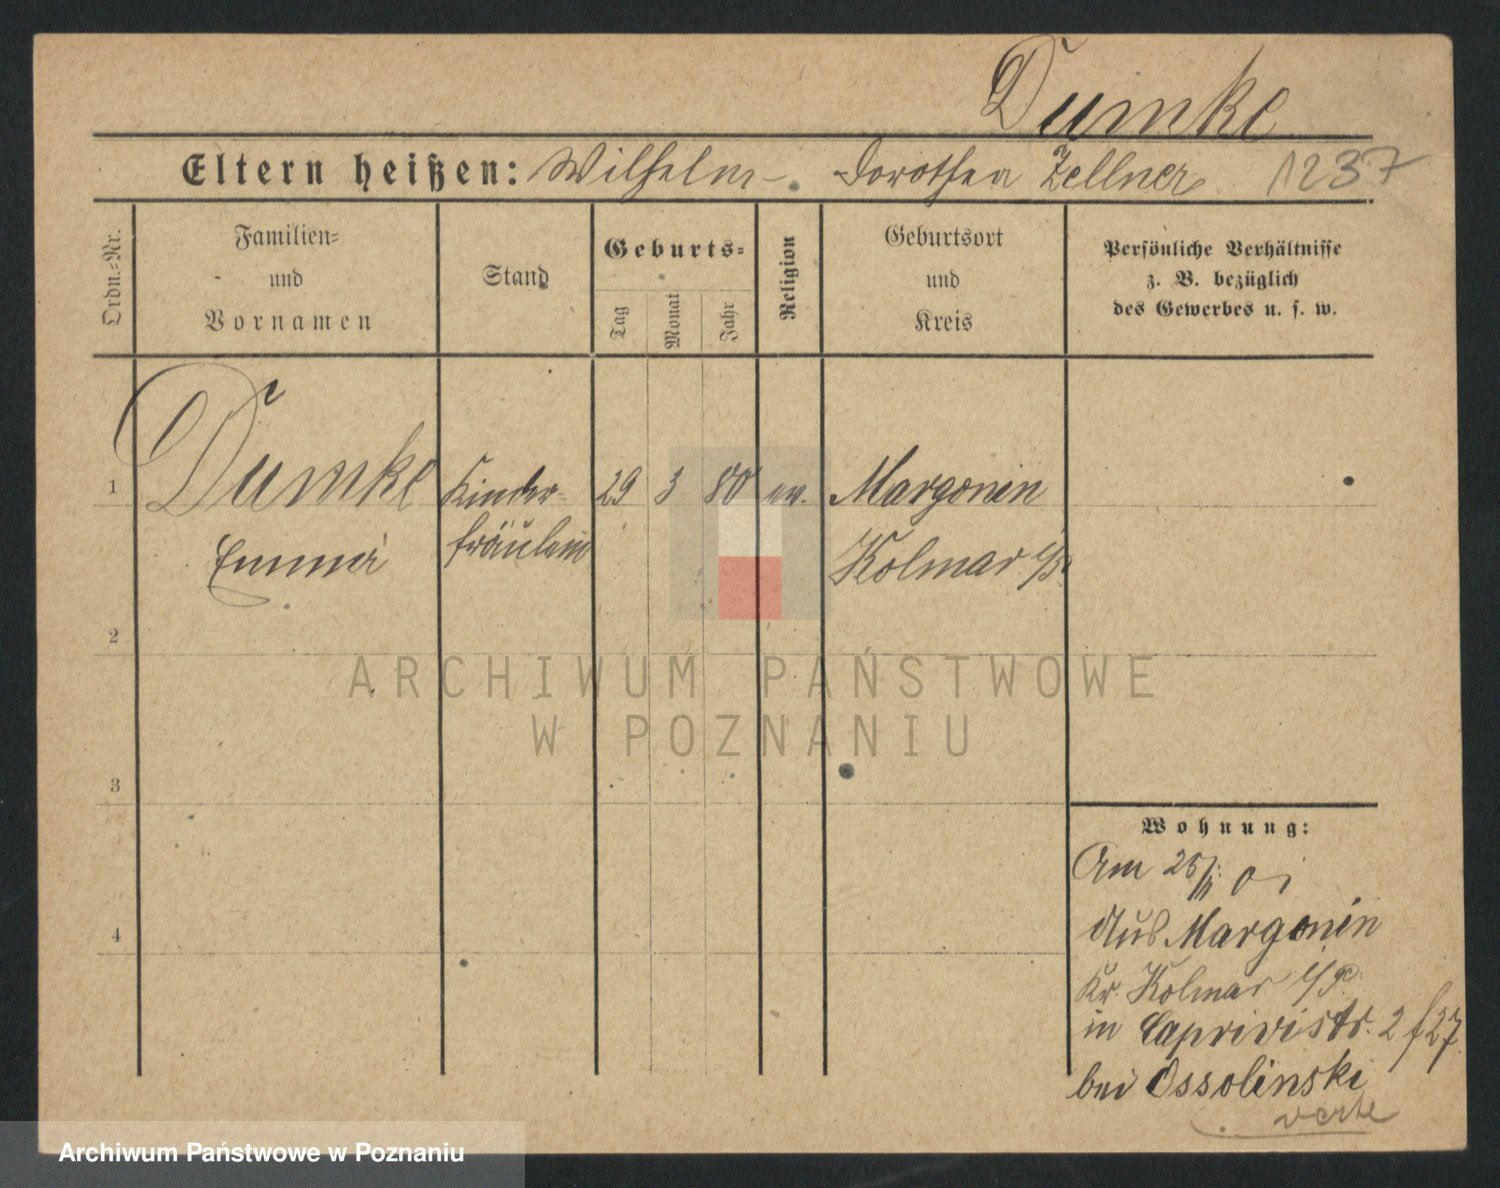 Dumke
Eltern heißen: Wilhelm - Dorothea Zellner 1237
Ordn.-Nr.
Familien-
und
Vornamen
Stand
Geburts-
Tag
Monat
Jahr
Religion
Geburtsort
und
Kreis
Persönliche Verhältnisse
z. B. bezüglich
des Gewerbes u. s. w.
1 Dumke Kinder- 29 3 80 ev. Margonin
Emma fräulein Kolmar i/P.
2
3
4
Wohnung:
Am 25/ 01
aus Margonin
Kr. Kolmar i/P.
in Caprivistr. 2 f 27
bei Ossolinski
verte
ARCHIWUM PAŃSTWOWE
W POZNANIU
Archiwum Państwowe w Poznaniu